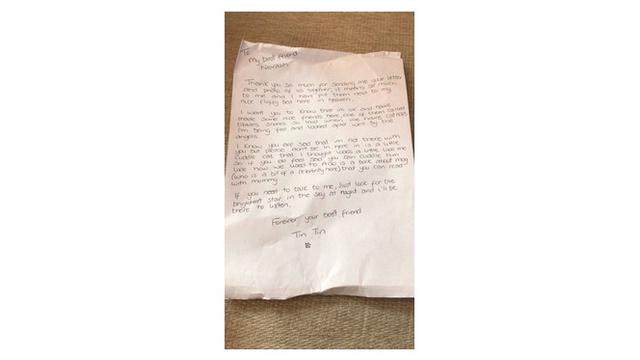 To
My best friend
Thank you so much for sending me your letter
and photo of us together, it means so much
to me and I have put them next to my
nice fluffy bed here in heaven.
I want you to know that im ok and have
made some nice friends here, one of them called
snores so loud when we have catnaps
I'm being fed and looked after well by the
angels.
I know you are sad that im not there with
you but please don't be, in here is a little
cuddle cat that I thought looks a little like me
so if you do feel sad you can cuddle him
like how we used to. Also is a book about mog
(who is a bit of a celebrity here) that you can read
with mummy.
If you need to talk to me, just look for the
brightest star in the sky at night and i'll be
there to listen.
Forever your best friend
Tin Tin